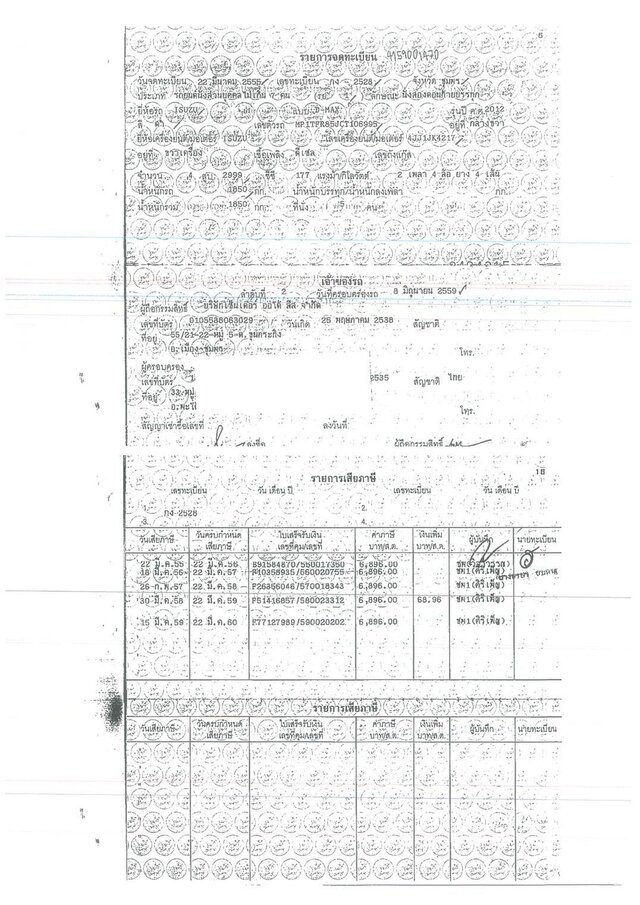 6
รายการจดทะเบียน
วันจดทะเบียน 22 มีนาคม 2555 เลขทะเบียน กง - 2528 จังหวัด ชุมพร
ประเภท รถยนต์นั่งส่วนบุคคลไม่เกิน 7 คน (รย. 1) ลักษณะ นั่งสองตอนท้ายบรรทุก
ยี่ห้อรถ ISUZU แบบ D-MAX รุ่นปี ค.ศ. 2012
สี ดำ เลขตัวรถ อยู่ที่ กลางขวา
ยี่ห้อเครื่องยนต์/มอเตอร์ ISUZU เลขเครื่องยนต์/มอเตอร์
อยู่ที่ ขวาเครื่อง เชื้อเพลิง ดีเซล เลขถังแก๊ส
จำนวน 4 สูบ 2999 ซีซี 177 แรงม้า/กิโลวัตต์ 2 เพลา 4 ล้อ ยาง 4 เส้น
น้ำหนักรถ 1850 กก. น้ำหนักบรรทุก/น้ำหนักลงเพลา กก.
น้ำหนักรวม 1850 กก. ที่นั่ง คน
เจ้าของรถ
ลำดับที่ 2 วันที่ครอบครองรถ 8 มิถุนายน 2559
ผู้ถือกรรมสิทธิ์
เลขที่บัตร 0105538063029 วันเกิด 25 พฤษภาคม 2538 สัญชาติ
ที่อยู่ 55/21-22 หมู่ 5 ต.ขุนกระทิง
อ.เมือง ชุมพร โทร.
ผู้ครอบครอง
เลขที่บัตร 2535 สัญชาติ ไทย
ที่อยู่ 33 หมู่
โทร.
สัญญาเช่าซื้อเลขที่ ลงวันที่
ลงชื่อ ผู้ถือกรรมสิทธิ์
18
รายการเสียภาษี
เลขทะเบียน วัน เดือน ปี เลขทะเบียน วัน เดือน ปี
1. กง 2528 2.
3. 4.
วันเสียภาษี วันครบกำหนดเสียภาษี ใบเสร็จรับเงิน เลขที่คุม/เลขที่ ค่าภาษี บาท/ส.ต. เงินเพิ่ม บาท/ส.ต. ผู้บันทึก นายทะเบียน
22 มี.ค.55 22 มี.ค.56 891584870/550017350 6,896.00
18 มี.ค.56 22 มี.ค.57 F10358935/560020755 6,896.00 ชพ1(ศิริเพ็ญ)
26 ก.พ.57 22 มี.ค.58 F26356046/570018343 6,896.00 ชพ1(ศิริเพ็ญ)
30 มี.ค.58 22 มี.ค.59 F51416857/580023312 6,896.00 68.96 ชพ1(ศิริเพ็ญ)
15 มี.ค.59 22 มี.ค.60 F77127989/590020202 6,896.00 ชพ1(ศิริเพ็ญ)
รายการเสียภาษี
วันเสียภาษี วันครบกำหนดเสียภาษี ใบเสร็จรับเงิน เลขที่คุม/เลขที่ ค่าภาษี บาท/ส.ต. เงินเพิ่ม บาท/ส.ต. ผู้บันทึก นายทะเบียน